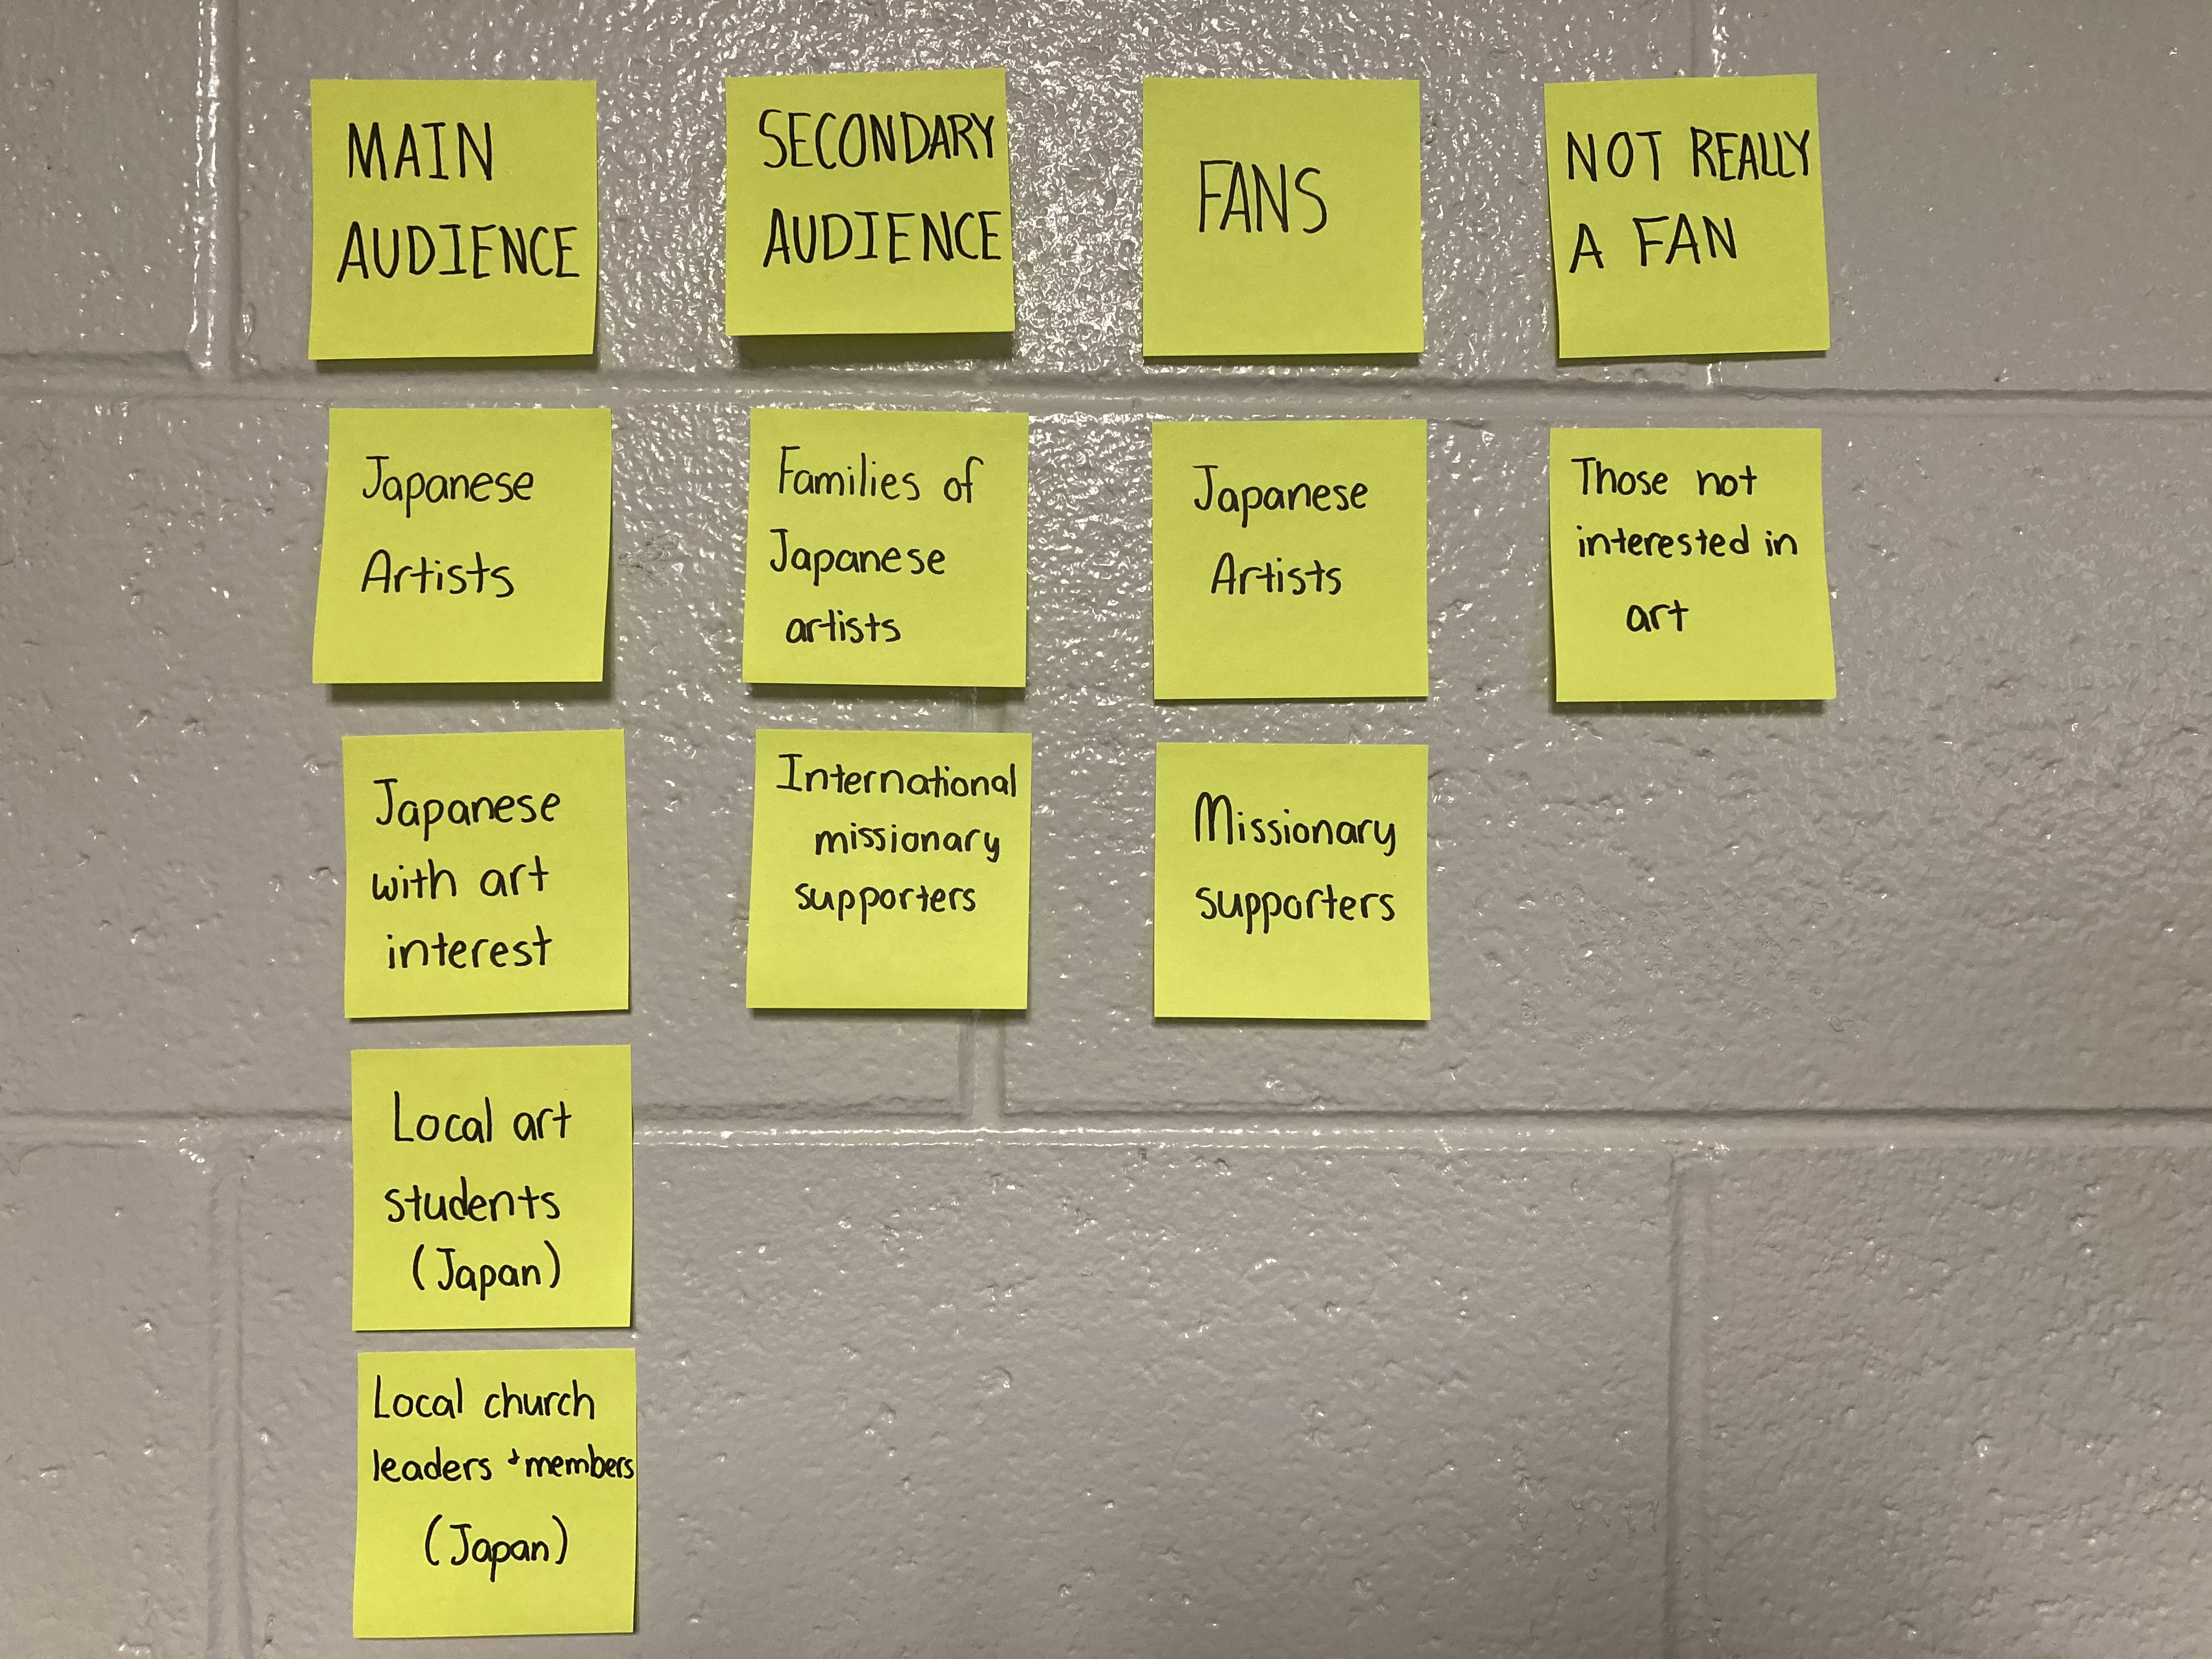 MAIN
AUDIENCE
Japanese
Artists
Japanese
with art
interest
Local art
students
(Japan)
Local church
leaders + members
(Japan)
SECONDARY
AUDIENCE
Families of
Japanese
artists
International
missionary
supporters
FANS
Japanese
Artists
Missionary
supporters
NOT REALLY
A FAN
Those not
interested in
art